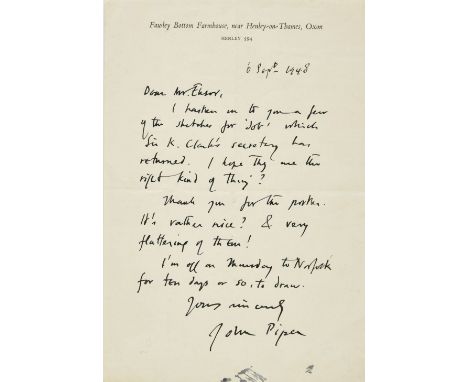 Fawley Bottom Farmhouse, near Henley-on-Thames, Oxon
HENLEY 594
6 Sept 1948
Dear Mr Ensor,
I hasten on to you a few
of the sketches for 'Job' which
Sir K. Clark's secretary has
returned. I hope they are the
right kind of thing?
Thank you for the poster.
It's rather nice? & very
flattering of them!
I'm off on Thursday to Norfolk
for ten days or so, to draw.
Yours sincerely
John Piper